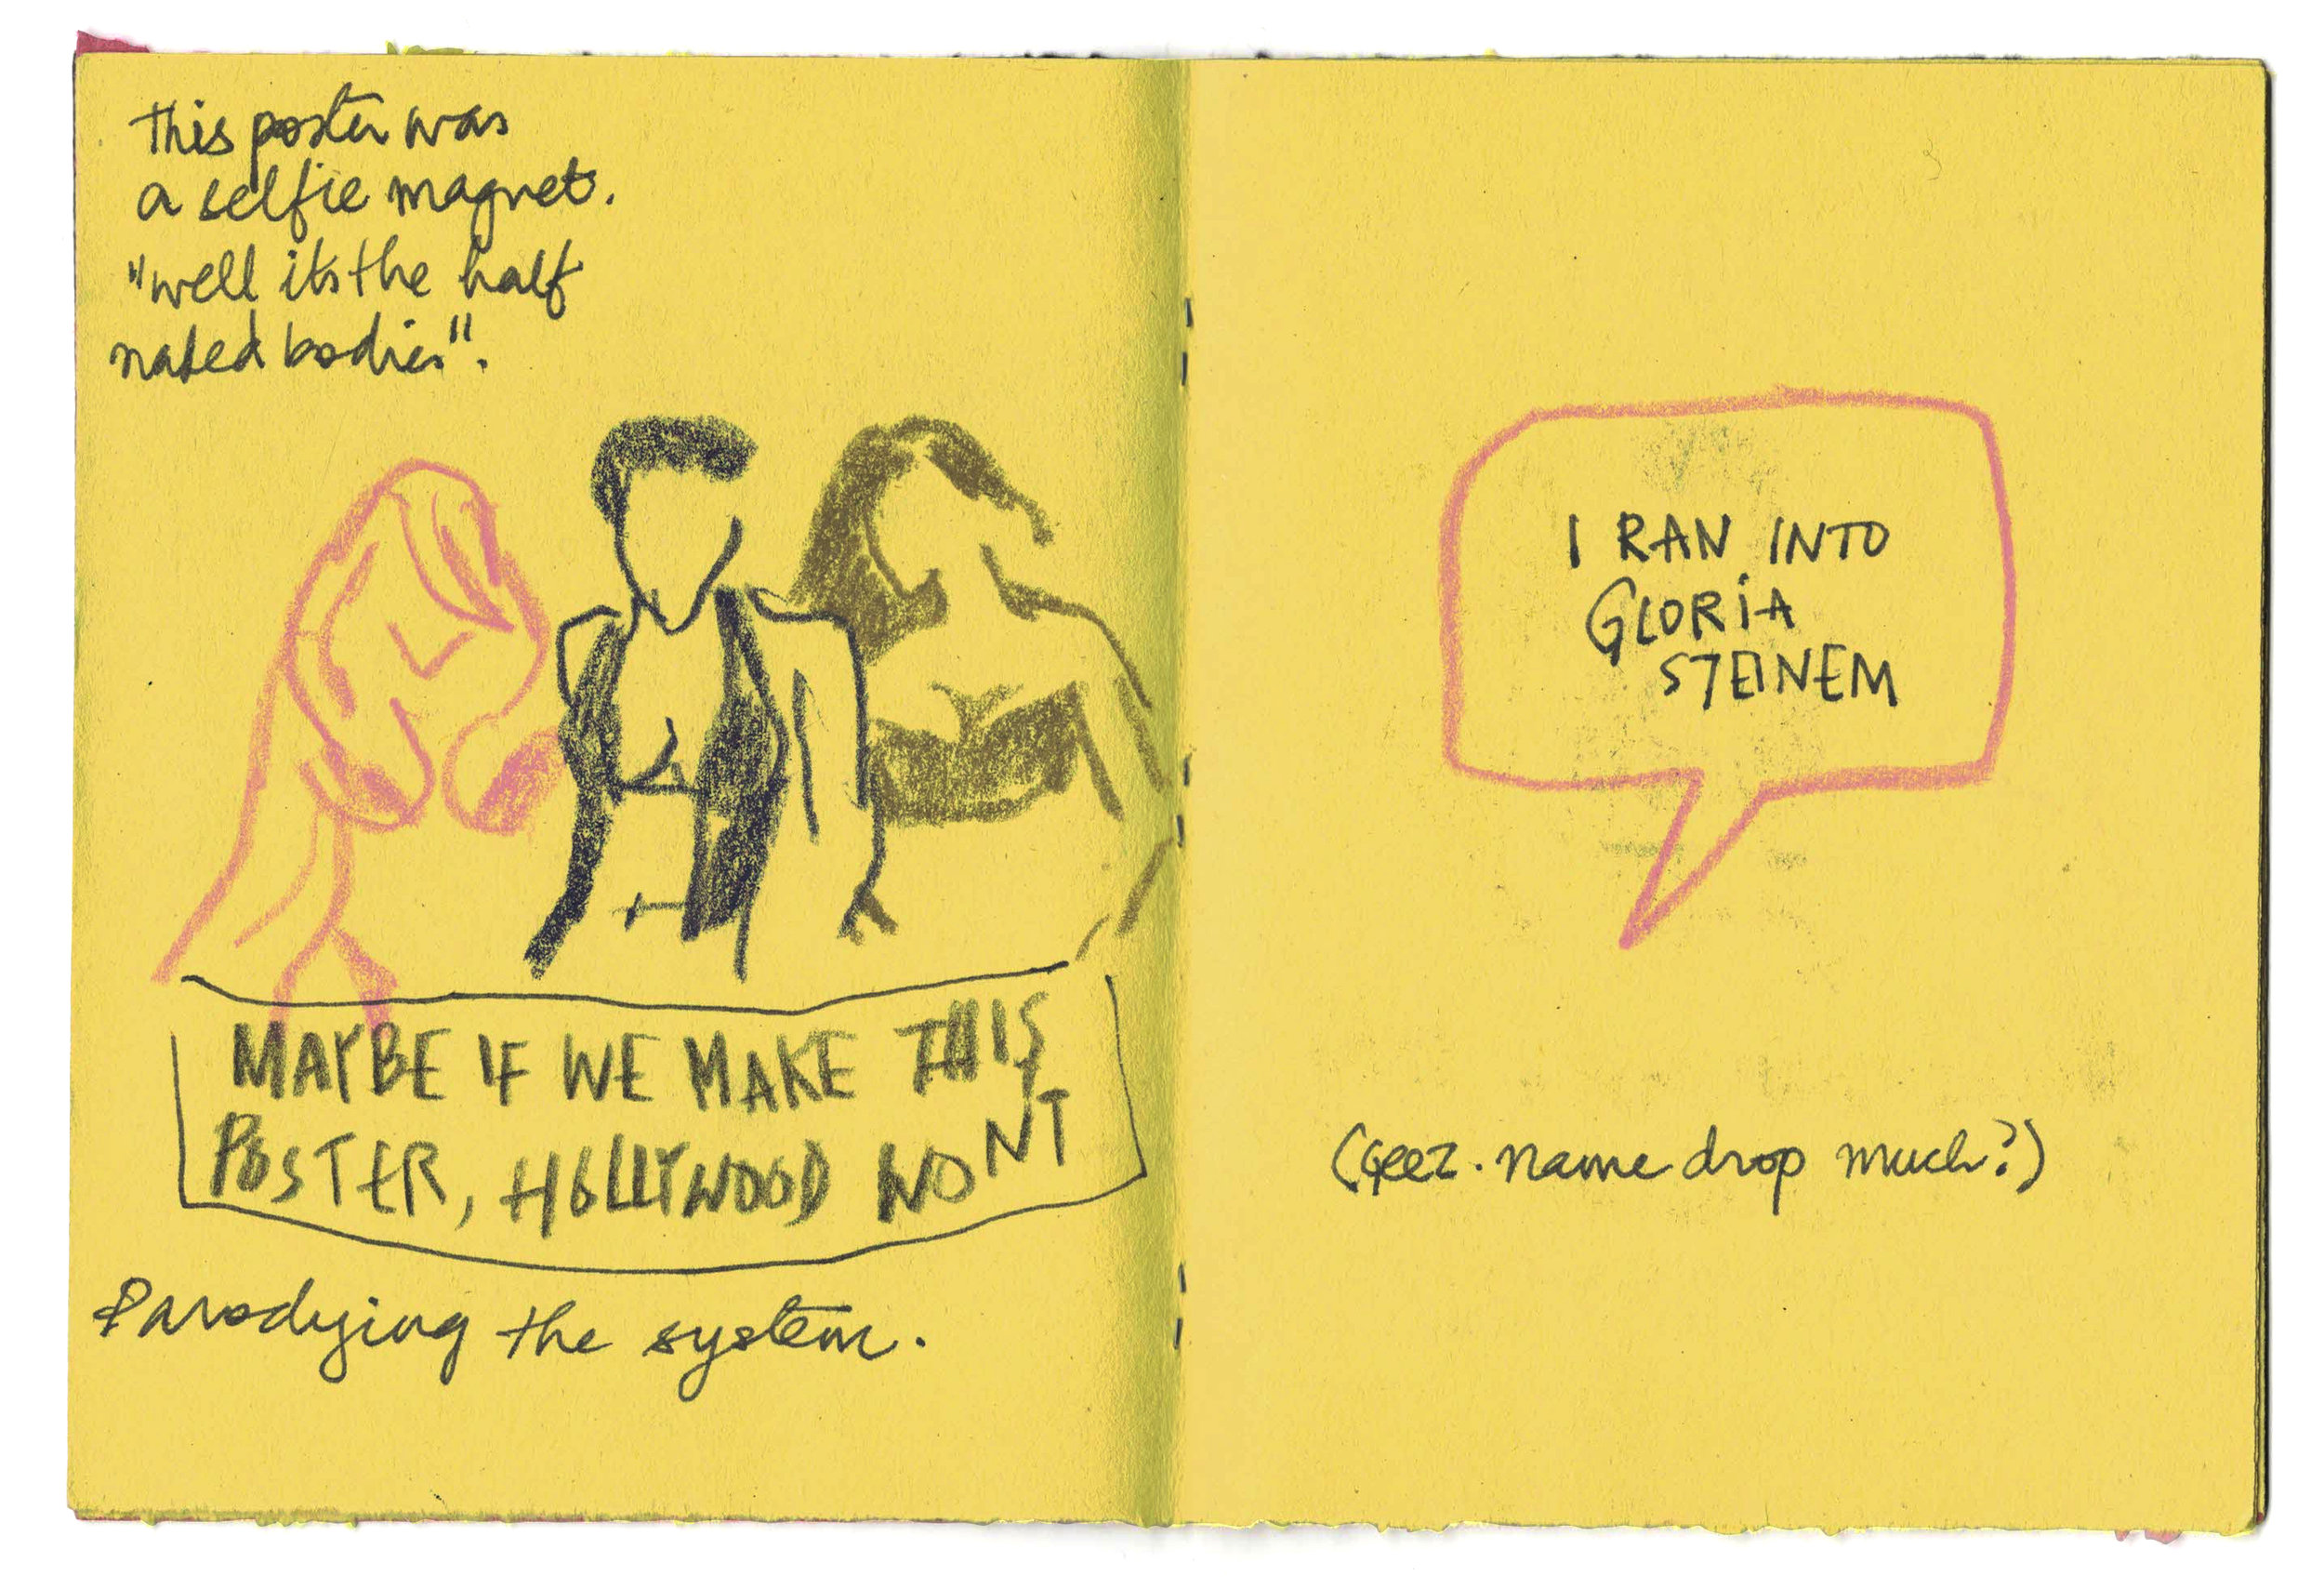 this poster was
a selfie magnet.
"well its the half
naked bodies".
MAYBE IF WE MAKE THIS
POSTER, HOLLYWOOD WONT
Parodying the system.
I RAN INTO
GLORiA
STEINEM
(Geez. name drop much?)